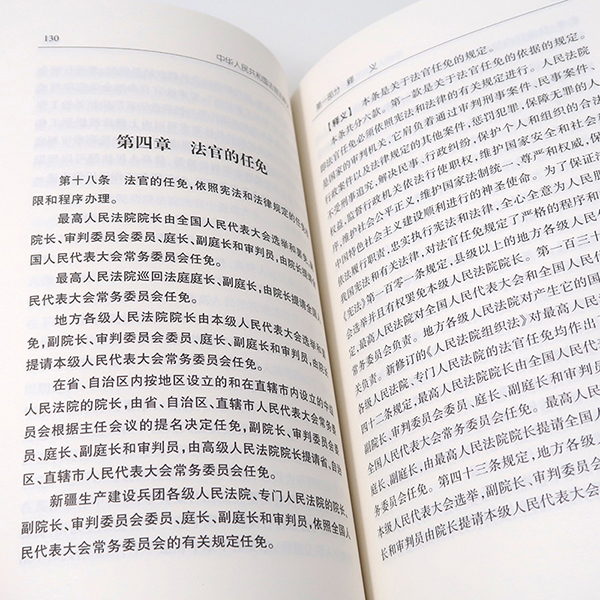 130
中华人民共和国法官法
第四章 法官的任免
第十八条 法官的任免,依照宪法和法律规定的任免
限和程序办理。
最高人民法院院长由全国人民代表大会选举和罢免,副
院长、审判委员会委员、庭长、副庭长和审判员,由院长提请
国人民代表大会常务委员会任免。
最高人民法院巡回法庭庭长、副庭长,由院长提请全国
民代表大会常务委员会任免。
地方各级人民法院院长由本级人民代表大会选举和
免,副院长、审判委员会委员、庭长、副庭长和审判员,由
提请本级人民代表大会常务委员会任免。
在省、自治区内按地区设立的和在直辖市内设立的中级
人民法院的院长,由省、自治区、直辖市人民代表大会常务
员会根据主任会议的提名决定任免,副院长、审判委员会委
员、庭长、副庭长和审判员,由高级人民法院院长提请省、自治
区、直辖市人民代表大会常务委员会任免。
新疆生产建设兵团各级人民法院、专门人民法院的院长、
副院长、审判委员会委员、庭长、副庭长和审判员,依照全国人
民代表大会常务委员会的有关规定任免。
第一部分 释 义
【释义】 本条是关于法官任免的规定。
本条共分六款。第一款是关于法官任免的依据的规定。
官任免必须依照宪法和法律的有关规定进行。人民法院
是国家的审判机关,它肩负着通过审判刑事案件、民事案件、
行政案件以及法律规定的其他案件,惩罚犯罪,保障无罪的人
不受刑事追究,解决民事、行政纠纷,保护个人和组织的合法
权益,监督行政机关依法行使职权,维护国家安全和社会
序,维护社会公平正义,维护国家法制统一、尊严和权威,保
中国特色社会主义建设顺利进行的神圣使命。为了保证法
依法履行职责,忠实执行宪法和法律,全心全意为人民服
我国宪法和有关法律,对法官任免规定了严格的程序和
《宪法》第一百零一条规定,县级以上的地方各级人民代表
会选举并且有权罢免本级人民法院院长。第一百三十
定,最高人民法院对全国人民代表大会和全国人民代
常务委员会负责。地方各级人民法院对产生它的国
关负责。新修订的《人民法院组织法》对最高人民
各级人民法院、专门人民法院的法官任免均作出了
四十二条规定,最高人民法院院长由全国人民代
副院长、审判委员会委员、庭长、副庭长和审判员
全国人民代表大会常务委员会任免。最高人
长、副庭长,由最高人民法院院长提请全国人
委员会任免。第四十三条规定,地方各级
本级人民代表大会选举,副院长、审判委员
长和审判员由院长提请本级人民代表大会